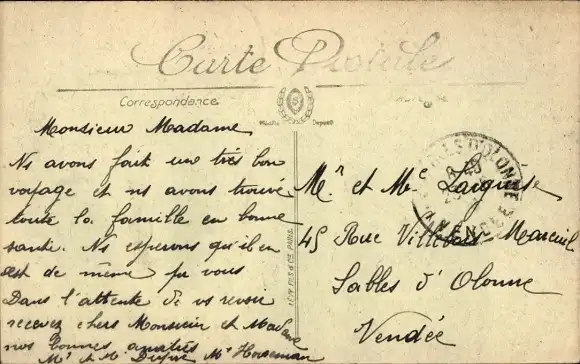 Carte Postale
Correspondance
Monsieur Madame
Ns avons fait une très bon
voyage et ns avons trouvé
toute la famille en bonne
santé. Ns esperons qu'il en
est de même pr vous
Dans l'attente de vs revoir
recevez chers Monsieur et Madame
nos bonnes amitiés
Mr et Me
LEVY FILS & CIE. PARIS
Mr et Me
45 Rue Mareuil
Sables d'Olonne
Vendée